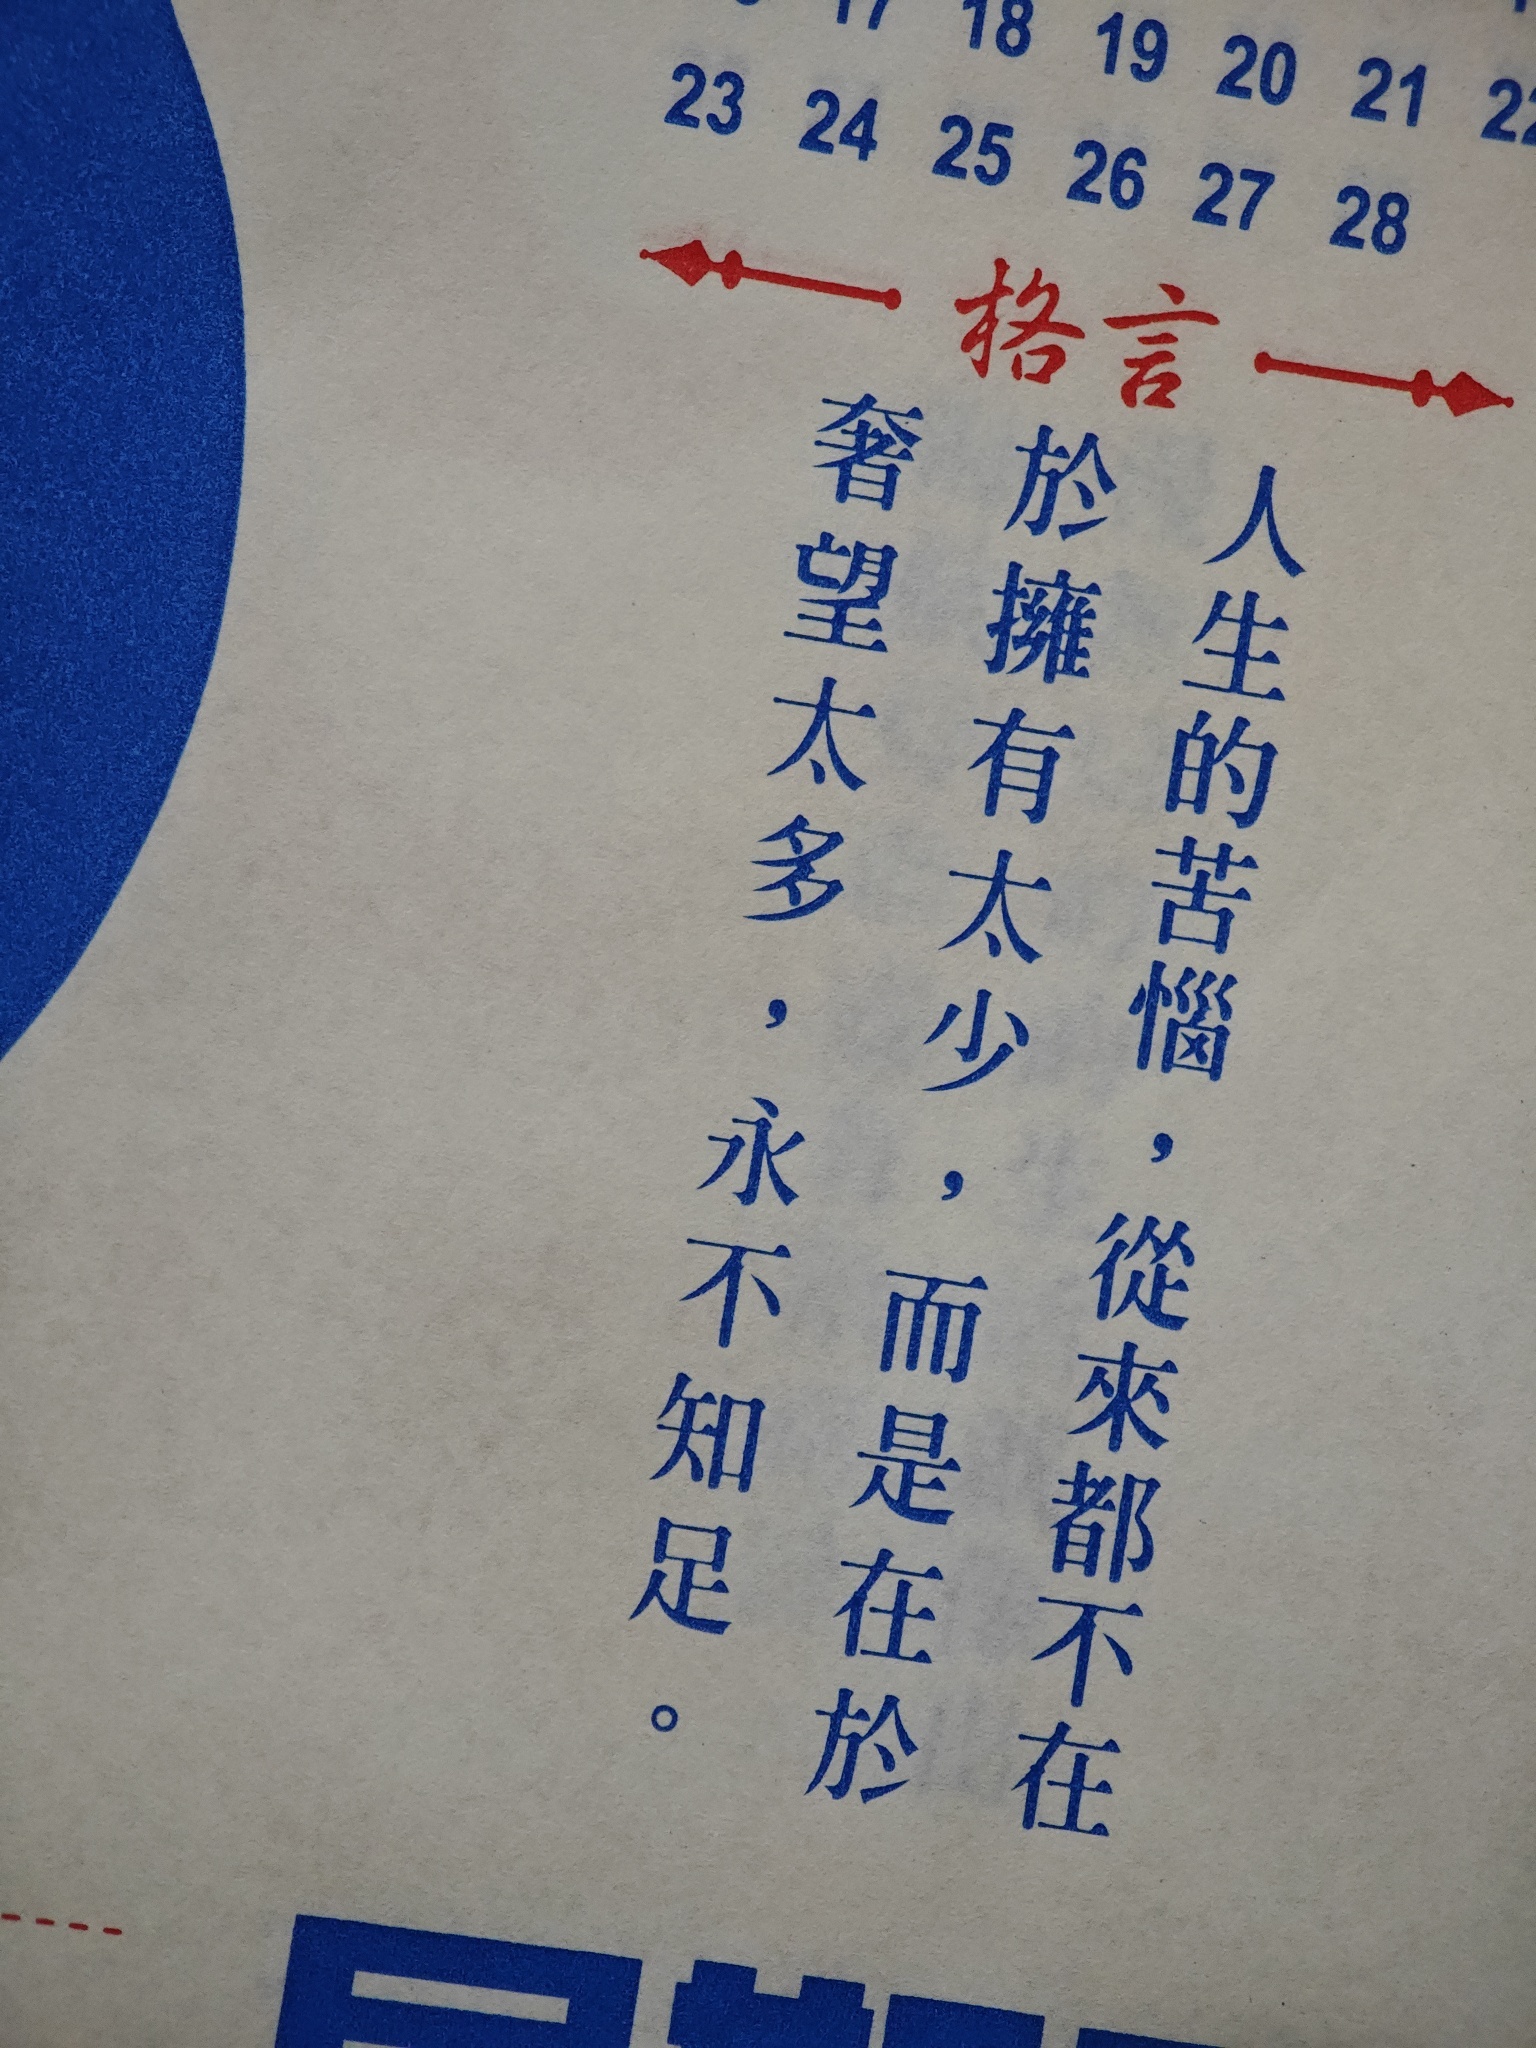 17 18 19 20 21 22
23 24 25 26 27 28
格言
人生的苦惱，從來都不在
於擁有太少，而是在於
奢望太多，永不知足。